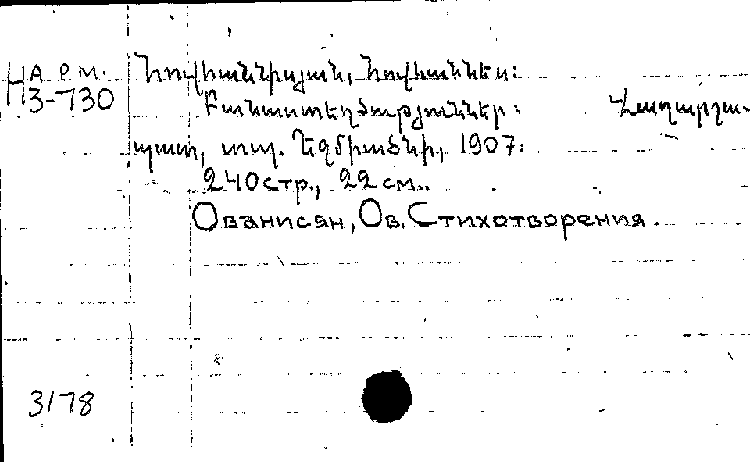 На рм.
3-730
Հովհաննիսյան, Հովհաննես:
Բանաստեղծություններ: Վաղարշա-
պատ, տպ. Եզմիածնի, 1907:
240стр., 22см..
Ованисян, Ов. Стихотворения.
3178